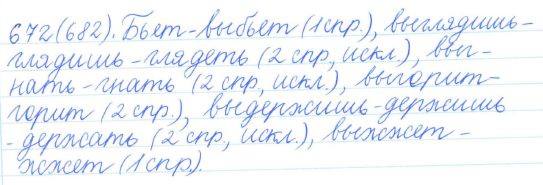 672(682). Бьет-выбьет (1спр.), выглядишь-
глядишь-глядеть (2 спр, искл.), вы-
нать-гнать (2 спр, искл.), выгорит-
горит (2 спр.), выдержишь-держишь
-держать (2 спр, искл.), выжжет-
жжет (1спр.).